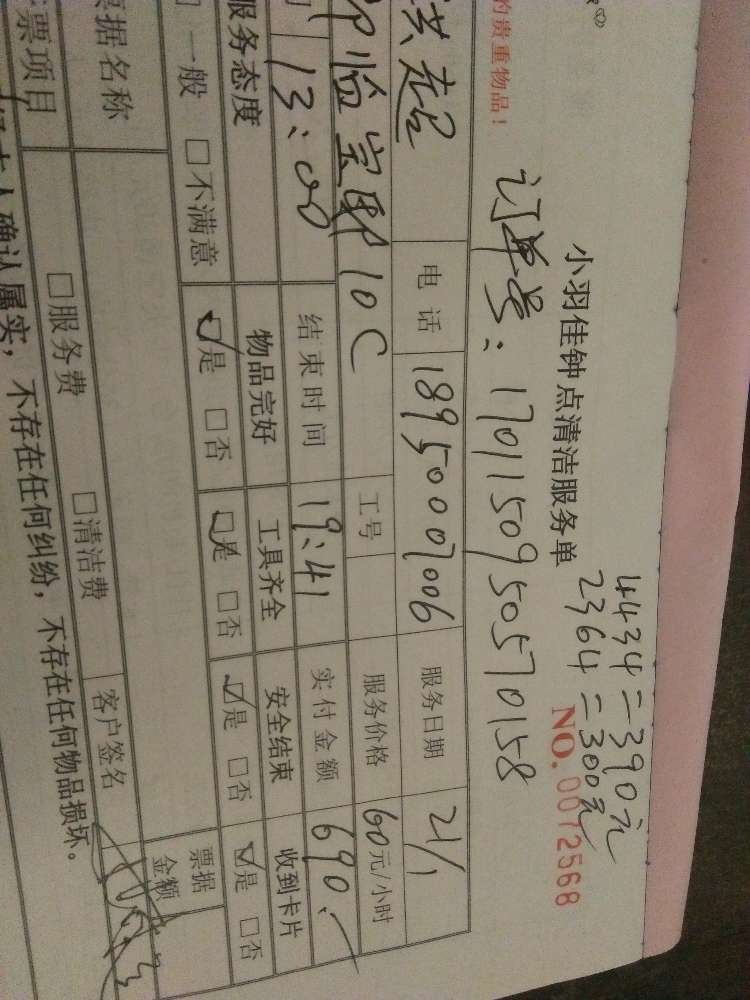 的贵重物品！
小羽佳钟点清洁服务单
4434=390元
2364=300元
NO.0072568
订单号：17011509505570158
洪起
电话
18950007006
服务日期
21/1
临宝郡10C
工号
服务价格
60元/小时
13:00
结束时间
19:41
实付金额
690.-
服务态度
物品完好
工具齐全
安全结束
收到卡片
□一般 □不满意
☑是 □否
☑是 □否
☑是 □否
☑是 □否
票据名称
□服务费
□清洁费
票据金额
票项目
客户签名
本人确认属实，不存在任何纠纷，不存在任何物品损坏。